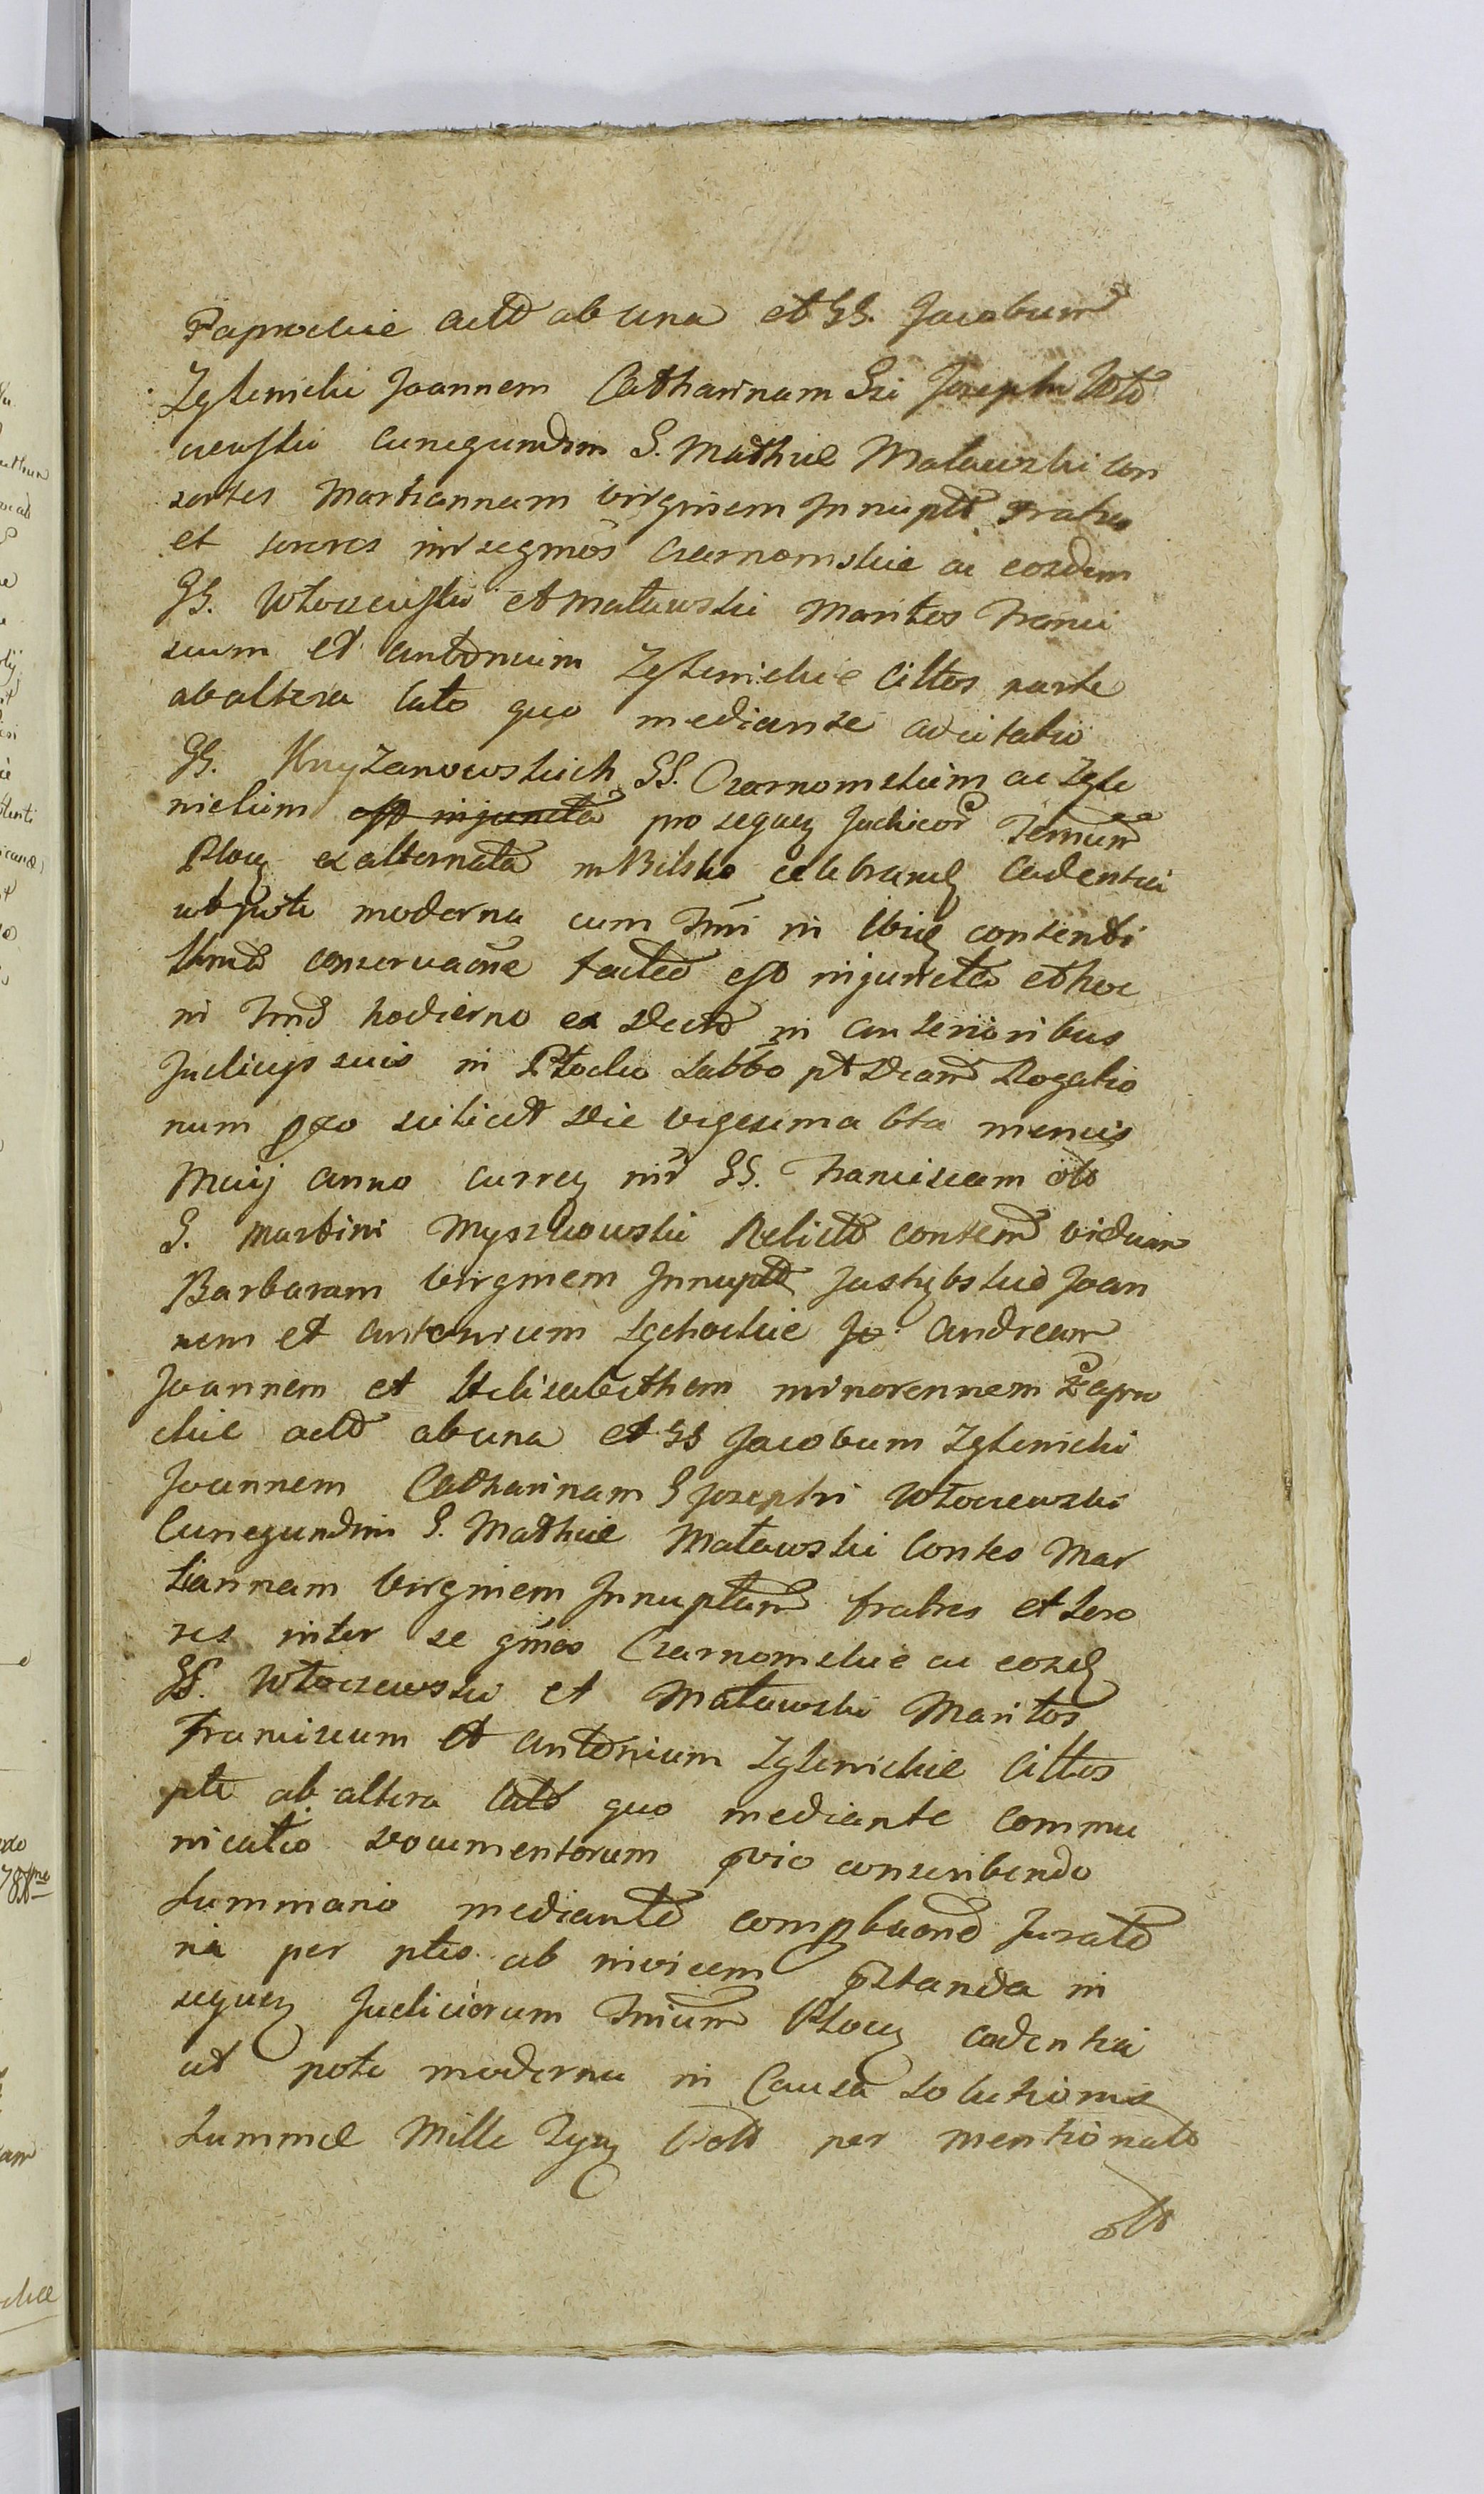 Paprockie actt ab una et GG. Jacobum
Zglenicki Joannem Catharinam Gsi Josephi Wło
czewski Cunegundim G. Mathiæ Małowski con
sortes Martiannam virginem Innuptt Fratres
et sorores inr se gmos Czarnomskie ac eosdem
GG. Włoczewski et Małowski Maritos Franci
scum et Antonium Zglenickie Cittos parte
ab altera lato quo mediante adcitatio
GG. Krzyzanowskich GG. Czarnomskim ac Zgle
nickim est injuncta pro sequen Judicior Termin
Ploceń ex alternata in Bilsko celebrand Cadentia
utpote moderna cum Tmi in
Tmo conservaone facta est injuncta et hoc
in Tmo hodierno ex Decto in anterioribus
Judicijs suis in Płocko Sabbo pt Dcam Rogatio
num pxo scilicet Die vigesima 6ta mensis
Maij anno curren inr GG. Franciscam olt
G. Martini Myszkowski Relictt contem viduam
Barbaram Virginem Innuptt Jastrzbskie Joan
nem et Antonium Lychockie Jo Andream
Joannem et Helisabetham minorennem Papro
ckie actt ab una et GG Jacobum Zglenicki
Joannem Catharinam G Josephi Włoczewski
Cunegundim G. Mathiæ Małowski Contes Mar
tiannam Virginem Innuptam fratres et Soro
res inter se gmos Czarnomskie ac eosd
GG. Włoczewski et Małowski Maritos
Franciscum et Antonium Zglenickie Cittos
pte ab altera lato quo mediante commu
nicatio Documentorum pvio conscribendo
Summario mediante compbaone Jurato
ria per ptes ab invicem pstanda in
sequen Judiciorum Tmium Plocen cadentia
ut pote moderna in Causa Solutionis
Summæ Mille Tym Polt per mentionatt
olt